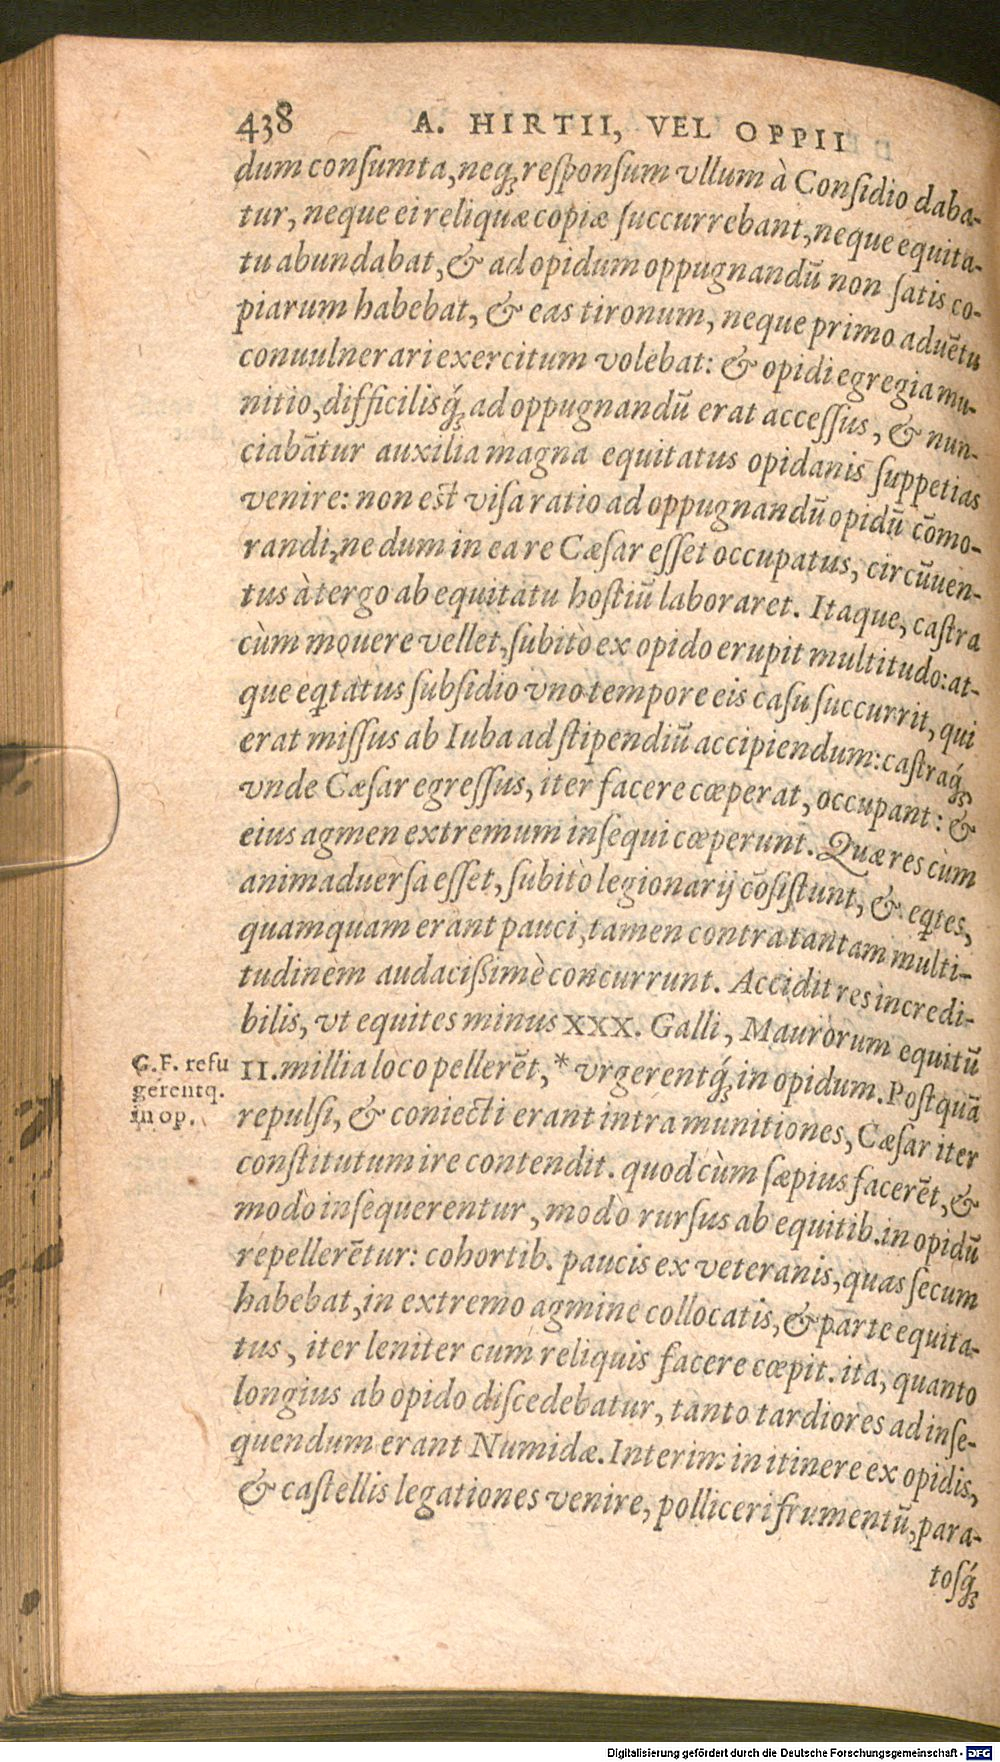 438 A. HIRTII, VEL OPPII
dum consumta, neq; responsum vllum à Considio daba-
tur, neque ei reliquæ copiæ succurrebant, neque equita-
tu abundabat, & ad opidum oppugnandū non satis co-
piarum habebat, & eas tironum, neque primo aduētu
conuulnerari exercitum volebat: & opidi egregia mu-
nitio, difficilisq́; ad oppugnandū erat accessus, & nun-
ciabātur auxilia magna equitatus opidanis suppetias
venire: non est visa ratio ad oppugnandū opidū cōmo-
randi, ne dum in ea re Cæsar esset occupatus, circūuen-
tus à tergo ab equitatu hostiū laboraret. Itaque, castra
cùm mouere vellet, subitò ex opido erupit multitudo: at-
que eq̃tatus subsidio vno tempore eis casu succurrit, qui
erat missus ab Iuba ad stipendiū accipiendum: castraq́;
vnde Cæsar egressus, iter facere cœperat, occupant: &
eius agmen extremum insequi cœperunt. Quæ res cùm
animaduersa esset, subitò legionarij cōsistunt, & eq̃tes,
quamquam erant pauci, tamen contra tantam multi-
tudinem audacissimè concurrunt. Accidit res incredi-
bilis, vt equites minus XXX. Galli, Maurorum equitū
II. millia loco pellerēt, * vrgerentq́; in opidum. Postquā
G. F. refu
gerentq.
in op.
repulsi, & coniecti erant intra munitiones, Cæsar iter
constitutum ire contendit. quod cùm sæpius facerēt, &
modò insequerentur, modò rursus ab equitib. in opidū
repellerētur: cohortib. paucis ex veteranis, quas secum
habebat, in extremo agmine collocatis, & parte equita-
tus, iter leniter cum reliquis facere cœpit. ita, quanto
longius ab opido discedebatur, tanto tardiores ad inse-
quendum erant Numidæ. Interim in itinere ex opidis,
& castellis legationes venire, polliceri frumentū, para-
tosq́;
Digitalisierung gefördert durch die Deutsche Forschungsgemeinschaft - DFG